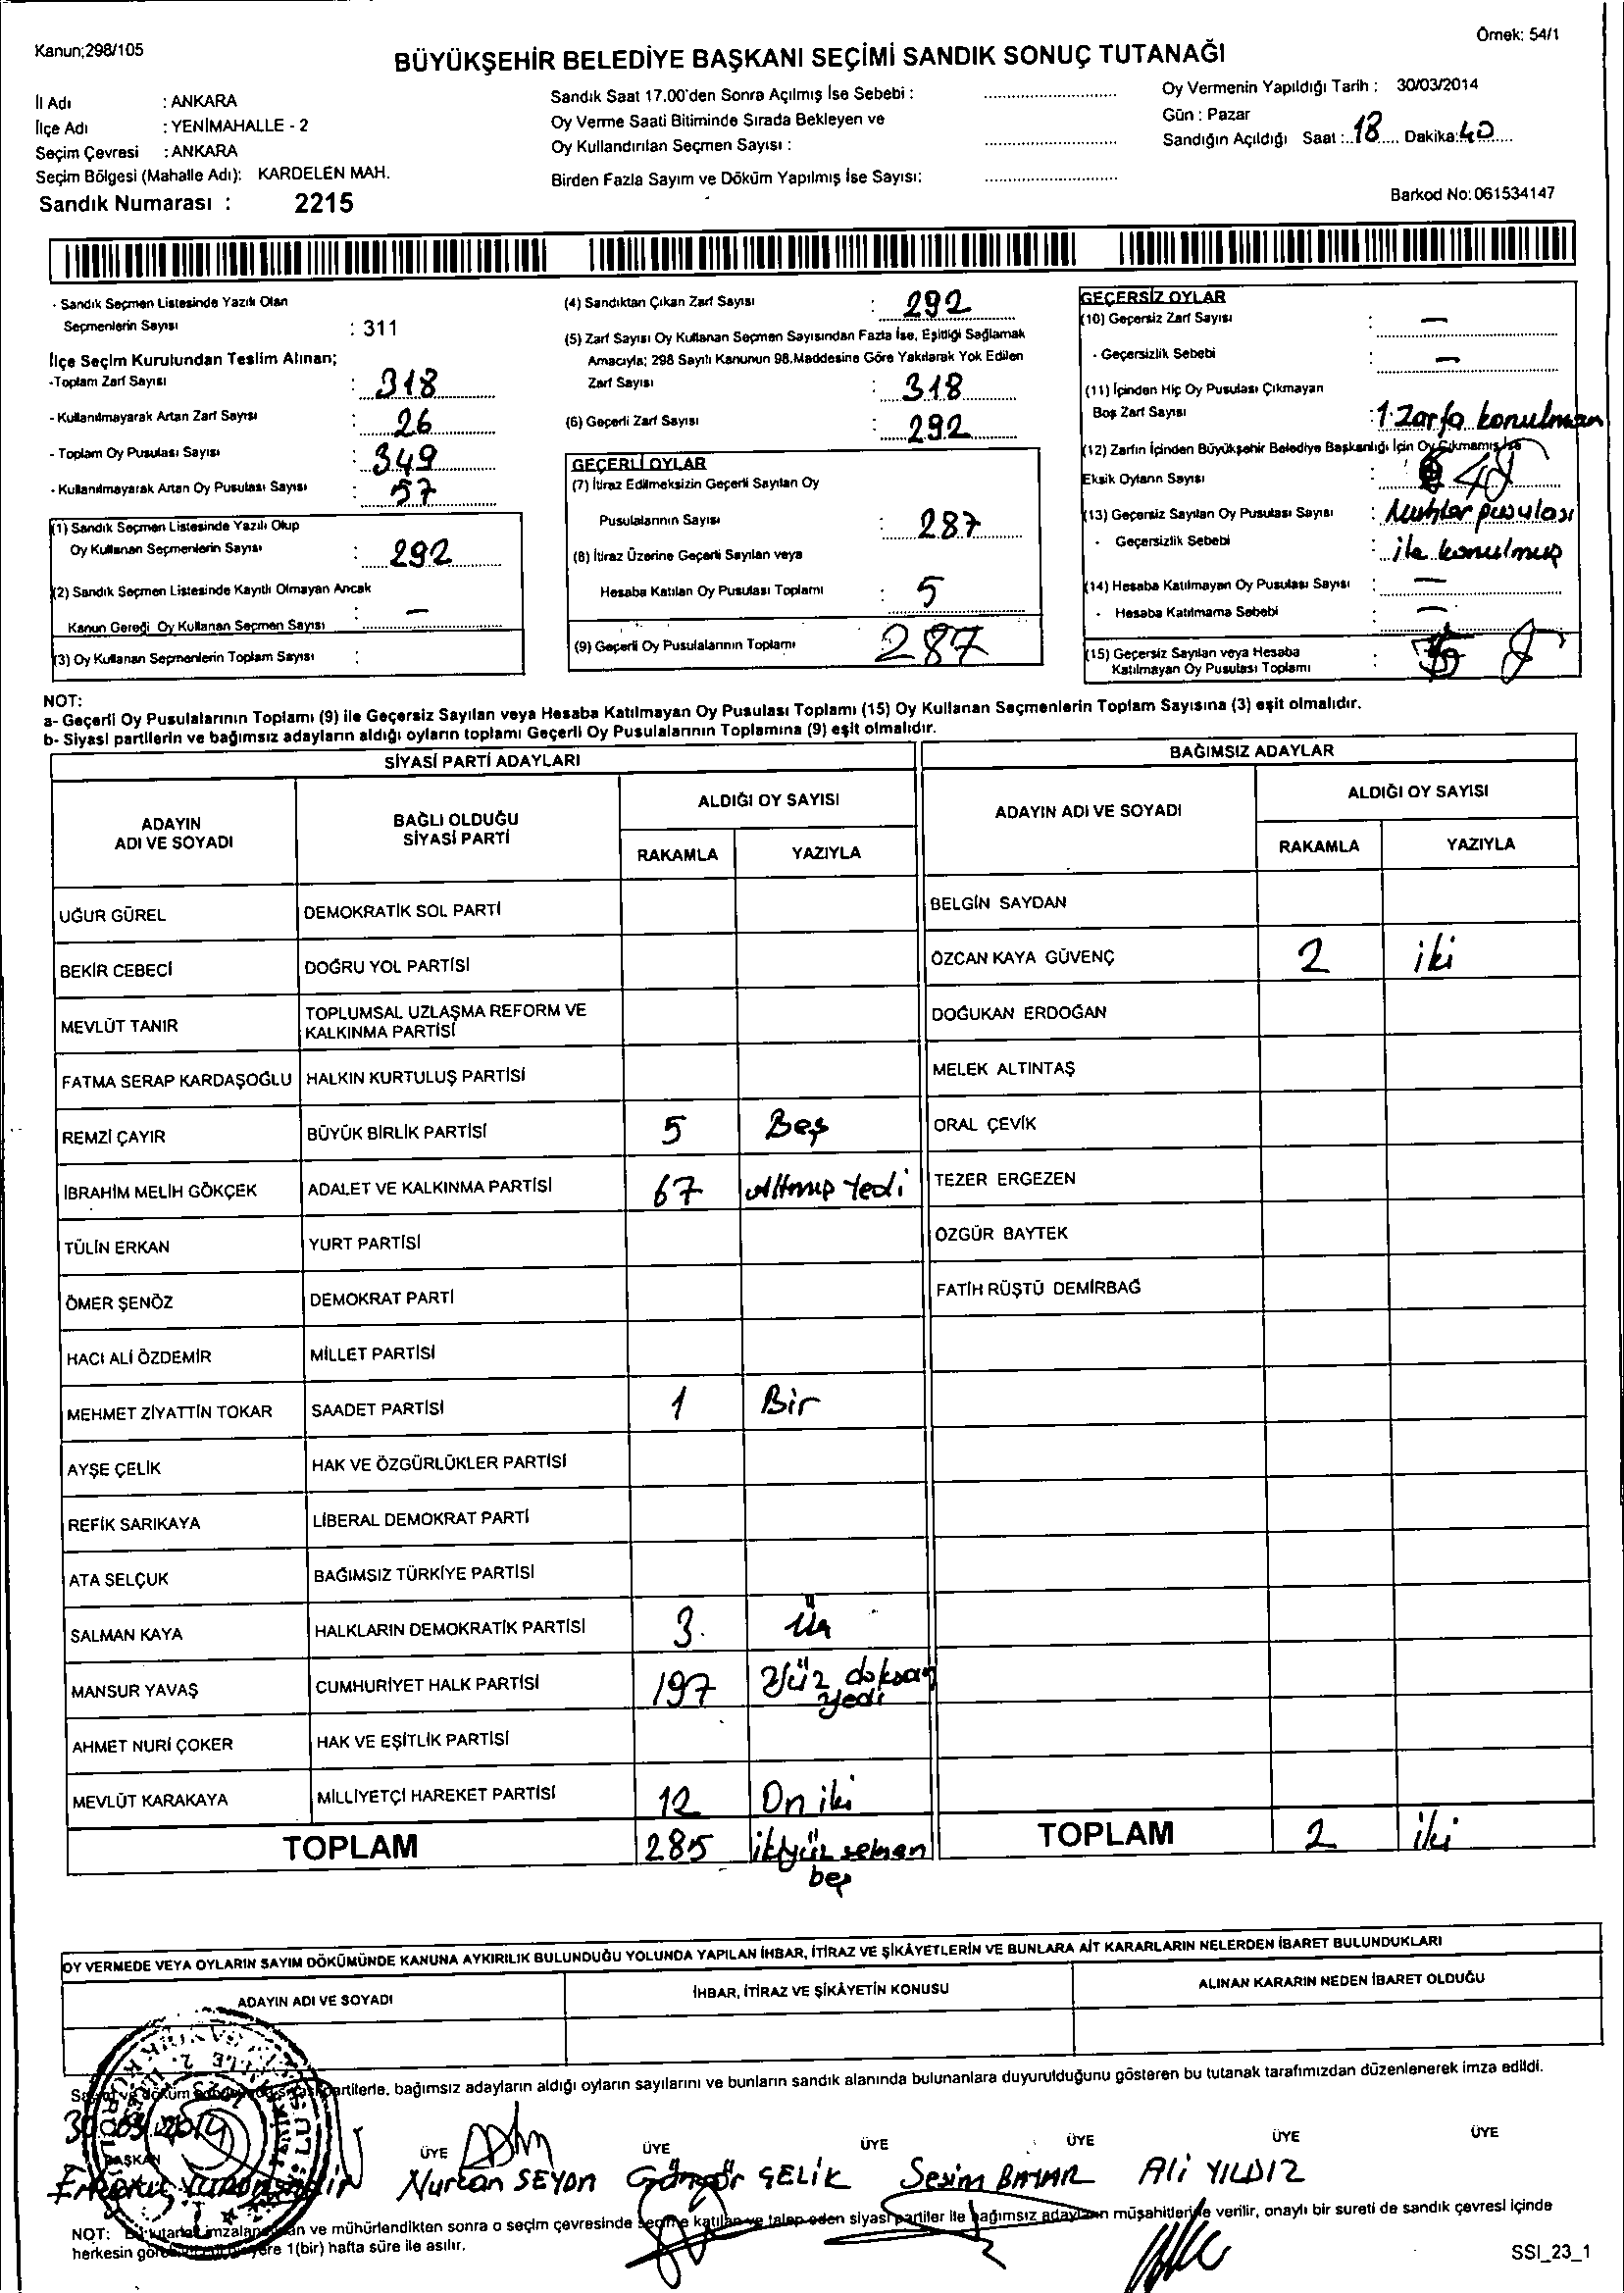 Kanun;298/105
Örnek: 54/1
BÜYÜKŞEHİR BELEDİYE BAŞKANI SEÇİMİ SANDIK SONUÇ TUTANAĞI
İl Adı : ANKARA
İlçe Adı : YENİMAHALLE - 2
Seçim Çevresi : ANKARA
Seçim Bölgesi (Mahalle Adı): KARDELEN MAH.
Sandık Numarası : 2215
Sandık Saat 17.00'den Sonra Açılmış İse Sebebi :
Oy Verme Saati Bitiminde Sırada Bekleyen ve
Oy Kullandırılan Seçmen Sayısı :
Birden Fazla Sayım ve Döküm Yapılmış İse Sayısı:
Oy Vermenin Yapıldığı Tarih : 30/03/2014
Gün : Pazar
Sandığın Açıldığı Saat : 18 Dakika: 40
Barkod No: 061534147
- Sandık Seçmen Listesinde Yazılı Olan
Seçmenlerin Sayısı : 311
İlçe Seçim Kurulundan Teslim Alınan;
-Toplam Zarf Sayısı : 318
- Kullanılmayarak Artan Zarf Sayısı : 26
- Toplam Oy Pusulası Sayısı : 349
- Kullanılmayarak Artan Oy Pusulası Sayısı : 57
(1) Sandık Seçmen Listesinde Yazılı Olup
Oy Kullanan Seçmenlerin Sayısı : 292
(2) Sandık Seçmen Listesinde Kayıtlı Olmayan Ancak
Kanun Gereği Oy Kullanan Seçmen Sayısı : —
(3) Oy Kullanan Seçmenlerin Toplam Sayısı :
(4) Sandıktan Çıkan Zarf Sayısı : 292
(5) Zarf Sayısı Oy Kullanan Seçmen Sayısından Fazla İse, Eşitliği Sağlamak
Amacıyla; 298 Sayılı Kanunun 98.Maddesine Göre Yakılarak Yok Edilen
Zarf Sayısı : 318
(6) Geçerli Zarf Sayısı : 292
GEÇERLİ OYLAR
(7) İtiraz Edilmeksizin Geçerli Sayılan Oy
Pusulalarının Sayısı : 287
(8) İtiraz Üzerine Geçerli Sayılan veya
Hesaba Katılan Oy Pusulası Toplamı : 5
(9) Geçerli Oy Pusulalarının Toplamı : 287
GEÇERSİZ OYLAR
(10) Geçersiz Zarf Sayısı : —
- Geçersizlik Sebebi : —
(11) İçinden Hiç Oy Pusulası Çıkmayan
Boş Zarf Sayısı : 1 Zarfa konulman
(12) Zarfın İçinden Büyükşehir Belediye Başkanlığı İçin Oy Çıkmamış İse
Eksik Oyların Sayısı :
(13) Geçersiz Sayılan Oy Pusulası Sayısı : Muhtar pusulası
- Geçersizlik Sebebi : ile konulmuş
(14) Hesaba Katılmayan Oy Pusulası Sayısı : —
- Hesaba Katılmama Sebebi : —
(15) Geçersiz Sayılan veya Hesaba
Katılmayan Oy Pusulası Toplamı :
NOT:
a- Geçerli Oy Pusulalarının Toplamı (9) ile Geçersiz Sayılan veya Hesaba Katılmayan Oy Pusulası Toplamı (15) Oy Kullanan Seçmenlerin Toplam Sayısına (3) eşit olmalıdır.
b- Siyasi partilerin ve bağımsız adayların aldığı oyların toplamı Geçerli Oy Pusulalarının Toplamına (9) eşit olmalıdır.
SİYASİ PARTİ ADAYLARI
BAĞIMSIZ ADAYLAR
ADAYIN ADI VE SOYADI
BAĞLI OLDUĞU SİYASİ PARTİ
ALDIĞI OY SAYISI
RAKAMLA YAZIYLA
ADAYIN ADI VE SOYADI
ALDIĞI OY SAYISI
RAKAMLA YAZIYLA
UĞUR GÜREL DEMOKRATİK SOL PARTİ BELGİN SAYDAN
BEKİR CEBECİ DOĞRU YOL PARTİSİ ÖZCAN KAYA GÜVENÇ 2 iki
MEVLÜT TANIR TOPLUMSAL UZLAŞMA REFORM VE KALKINMA PARTİSİ DOĞUKAN ERDOĞAN
FATMA SERAP KARDAŞOĞLU HALKIN KURTULUŞ PARTİSİ MELEK ALTINTAŞ
REMZİ ÇAYIR BÜYÜK BİRLİK PARTİSİ 5 Beş ORAL ÇEVİK
İBRAHİM MELİH GÖKÇEK ADALET VE KALKINMA PARTİSİ 67 Altmış Yedi TEZER ERGEZEN
TÜLİN ERKAN YURT PARTİSİ ÖZGÜR BAYTEK
ÖMER ŞENÖZ DEMOKRAT PARTİ FATİH RÜŞTÜ DEMİRBAĞ
HACI ALİ ÖZDEMİR MİLLET PARTİSİ
MEHMET ZİYATTİN TOKAR SAADET PARTİSİ 1 Bir
AYŞE ÇELİK HAK VE ÖZGÜRLÜKLER PARTİSİ
REFİK SARIKAYA LİBERAL DEMOKRAT PARTİ
ATA SELÇUK BAĞIMSIZ TÜRKİYE PARTİSİ
SALMAN KAYA HALKLARIN DEMOKRATİK PARTİSİ 3 Üç
MANSUR YAVAŞ CUMHURİYET HALK PARTİSİ 197 Yüz doksan yedi
AHMET NURİ ÇOKER HAK VE EŞİTLİK PARTİSİ
MEVLÜT KARAKAYA MİLLİYETÇİ HAREKET PARTİSİ 12 On iki
TOPLAM 285 ikiyüz seksen beş TOPLAM 2 iki
OY VERMEDE VEYA OYLARIN SAYIM DÖKÜMÜNDE KANUNA AYKIRILIK BULUNDUĞU YOLUNDA YAPILAN İHBAR, İTİRAZ VE ŞİKÂYETLERİN VE BUNLARA AİT KARARLARIN NELERDEN İBARET BULUNDUKLARI
ADAYIN ADI VE SOYADI İHBAR, İTİRAZ VE ŞİKÂYETİN KONUSU ALINAN KARARIN NEDEN İBARET OLDUĞU
Sayım ve döküm partilerle, bağımsız adayların aldığı oyların sayılarını ve bunların sandık alanında bulunanlara duyurulduğunu gösteren bu tutanak tarafımızdan düzenlenerek imza edildi.
30.03.2014
BAŞKAN ÜYE ÜYE ÜYE ÜYE ÜYE ÜYE
Nurcan SEYDN Güngör ÇELİK Sevim BAYAR Ali YILDIZ
NOT: Bu tutanak imzalandıktan ve mühürlendikten sonra o seçim çevresinde seçime katılan ve talep eden siyasi partiler ile bağımsız adayların müşahitlerine verilir, onaylı bir sureti de sandık çevresi içinde
herkesin görebileceği bir yere 1(bir) hafta süre ile asılır.
SSI_23_1